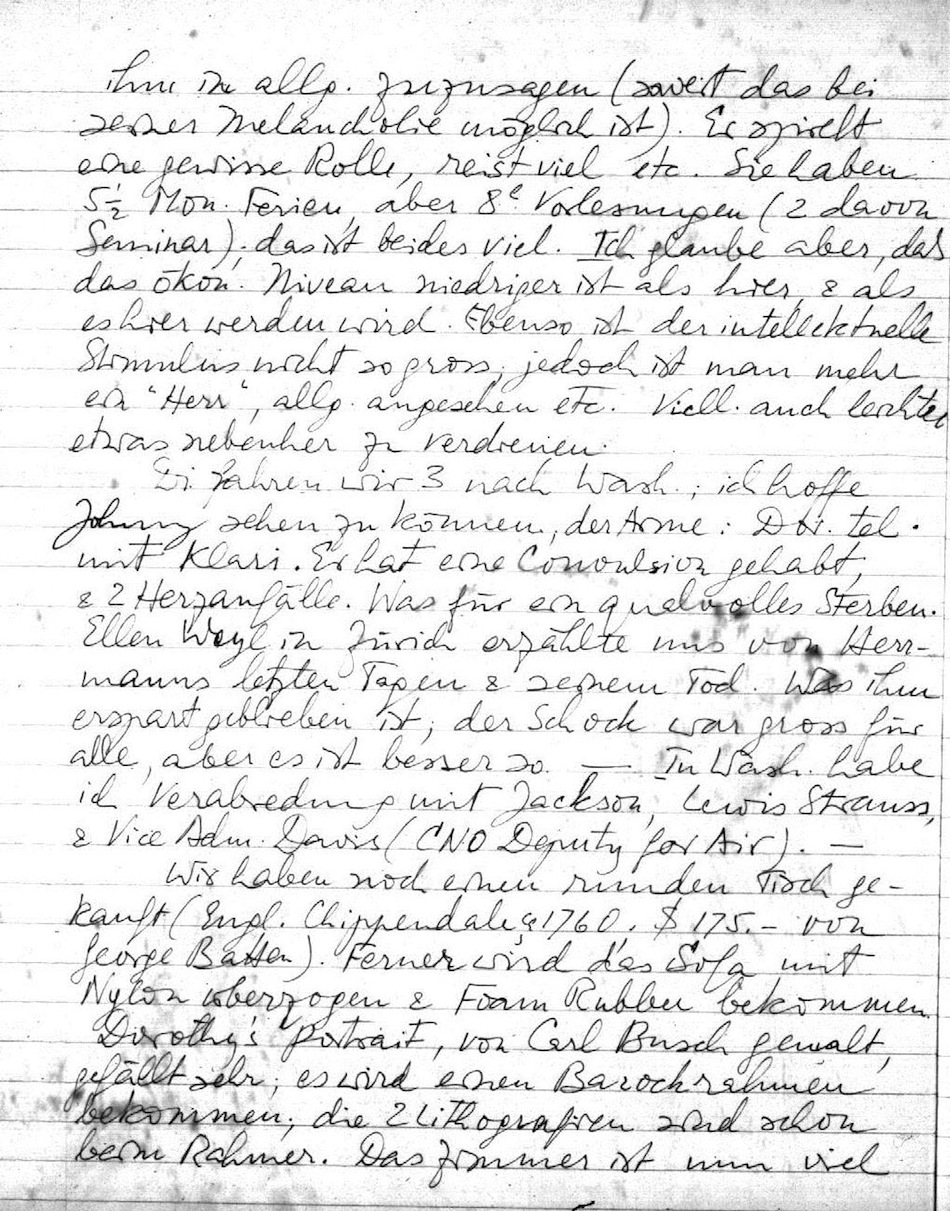 ihm im allg. zuzusagen (soweit das bei
seiner Melancholie möglich ist). Er spielt
eine gewisse Rolle, reist viel etc. Sie haben
5½ Mon. Ferien, aber 8 Vorlesungen (2 davon
Seminar); das ist beides viel. Ich glaube aber, daß
das ökon. Niveau niedriger ist als hier, & als
es hier werden wird. Ebenso ist der intellektuelle
Stimulus nicht so gross; jedoch ist man mehr
ein "Herr", allg. angesehen etc. Viell. auch leichter
etwas nebenher zu verdienen.
Di fahren wir 3 nach Wash.; ich hoffe
Johnny sehen zu können, der Arme: Dor. tel.
mit Klari. Er hat eine Convulsion gehabt,
& 2 Herzanfälle. Was für ein qualvolles Sterben.
Ellen Weyl in Zürich erzählte uns von Herr-
manns letzten Tagen & seinem Tod. Was ihm
erspart geblieben ist; der Schock war gross für
alle, aber es ist besser so. — In Wash. habe
ich Verabredung mit Jackson, Lewis Strauss,
& Vice Adm. Davis (CNO Deputy for Air). —
Wir haben noch einen runden Tisch ge-
kauft (Engl. Chippendale, 1760, $ 175.- von
George Batten). Ferner wird das Sofa mit
Nylon überzogen & Foam Rubber bekommen.
Dorothy's Portrait, von Carl Busch gemalt,
gefällt sehr; es wird einen Barockrahmen
bekommen; die 2 Lithografien sind schon
beim Rahmer. Das Zimmer ist nun viel